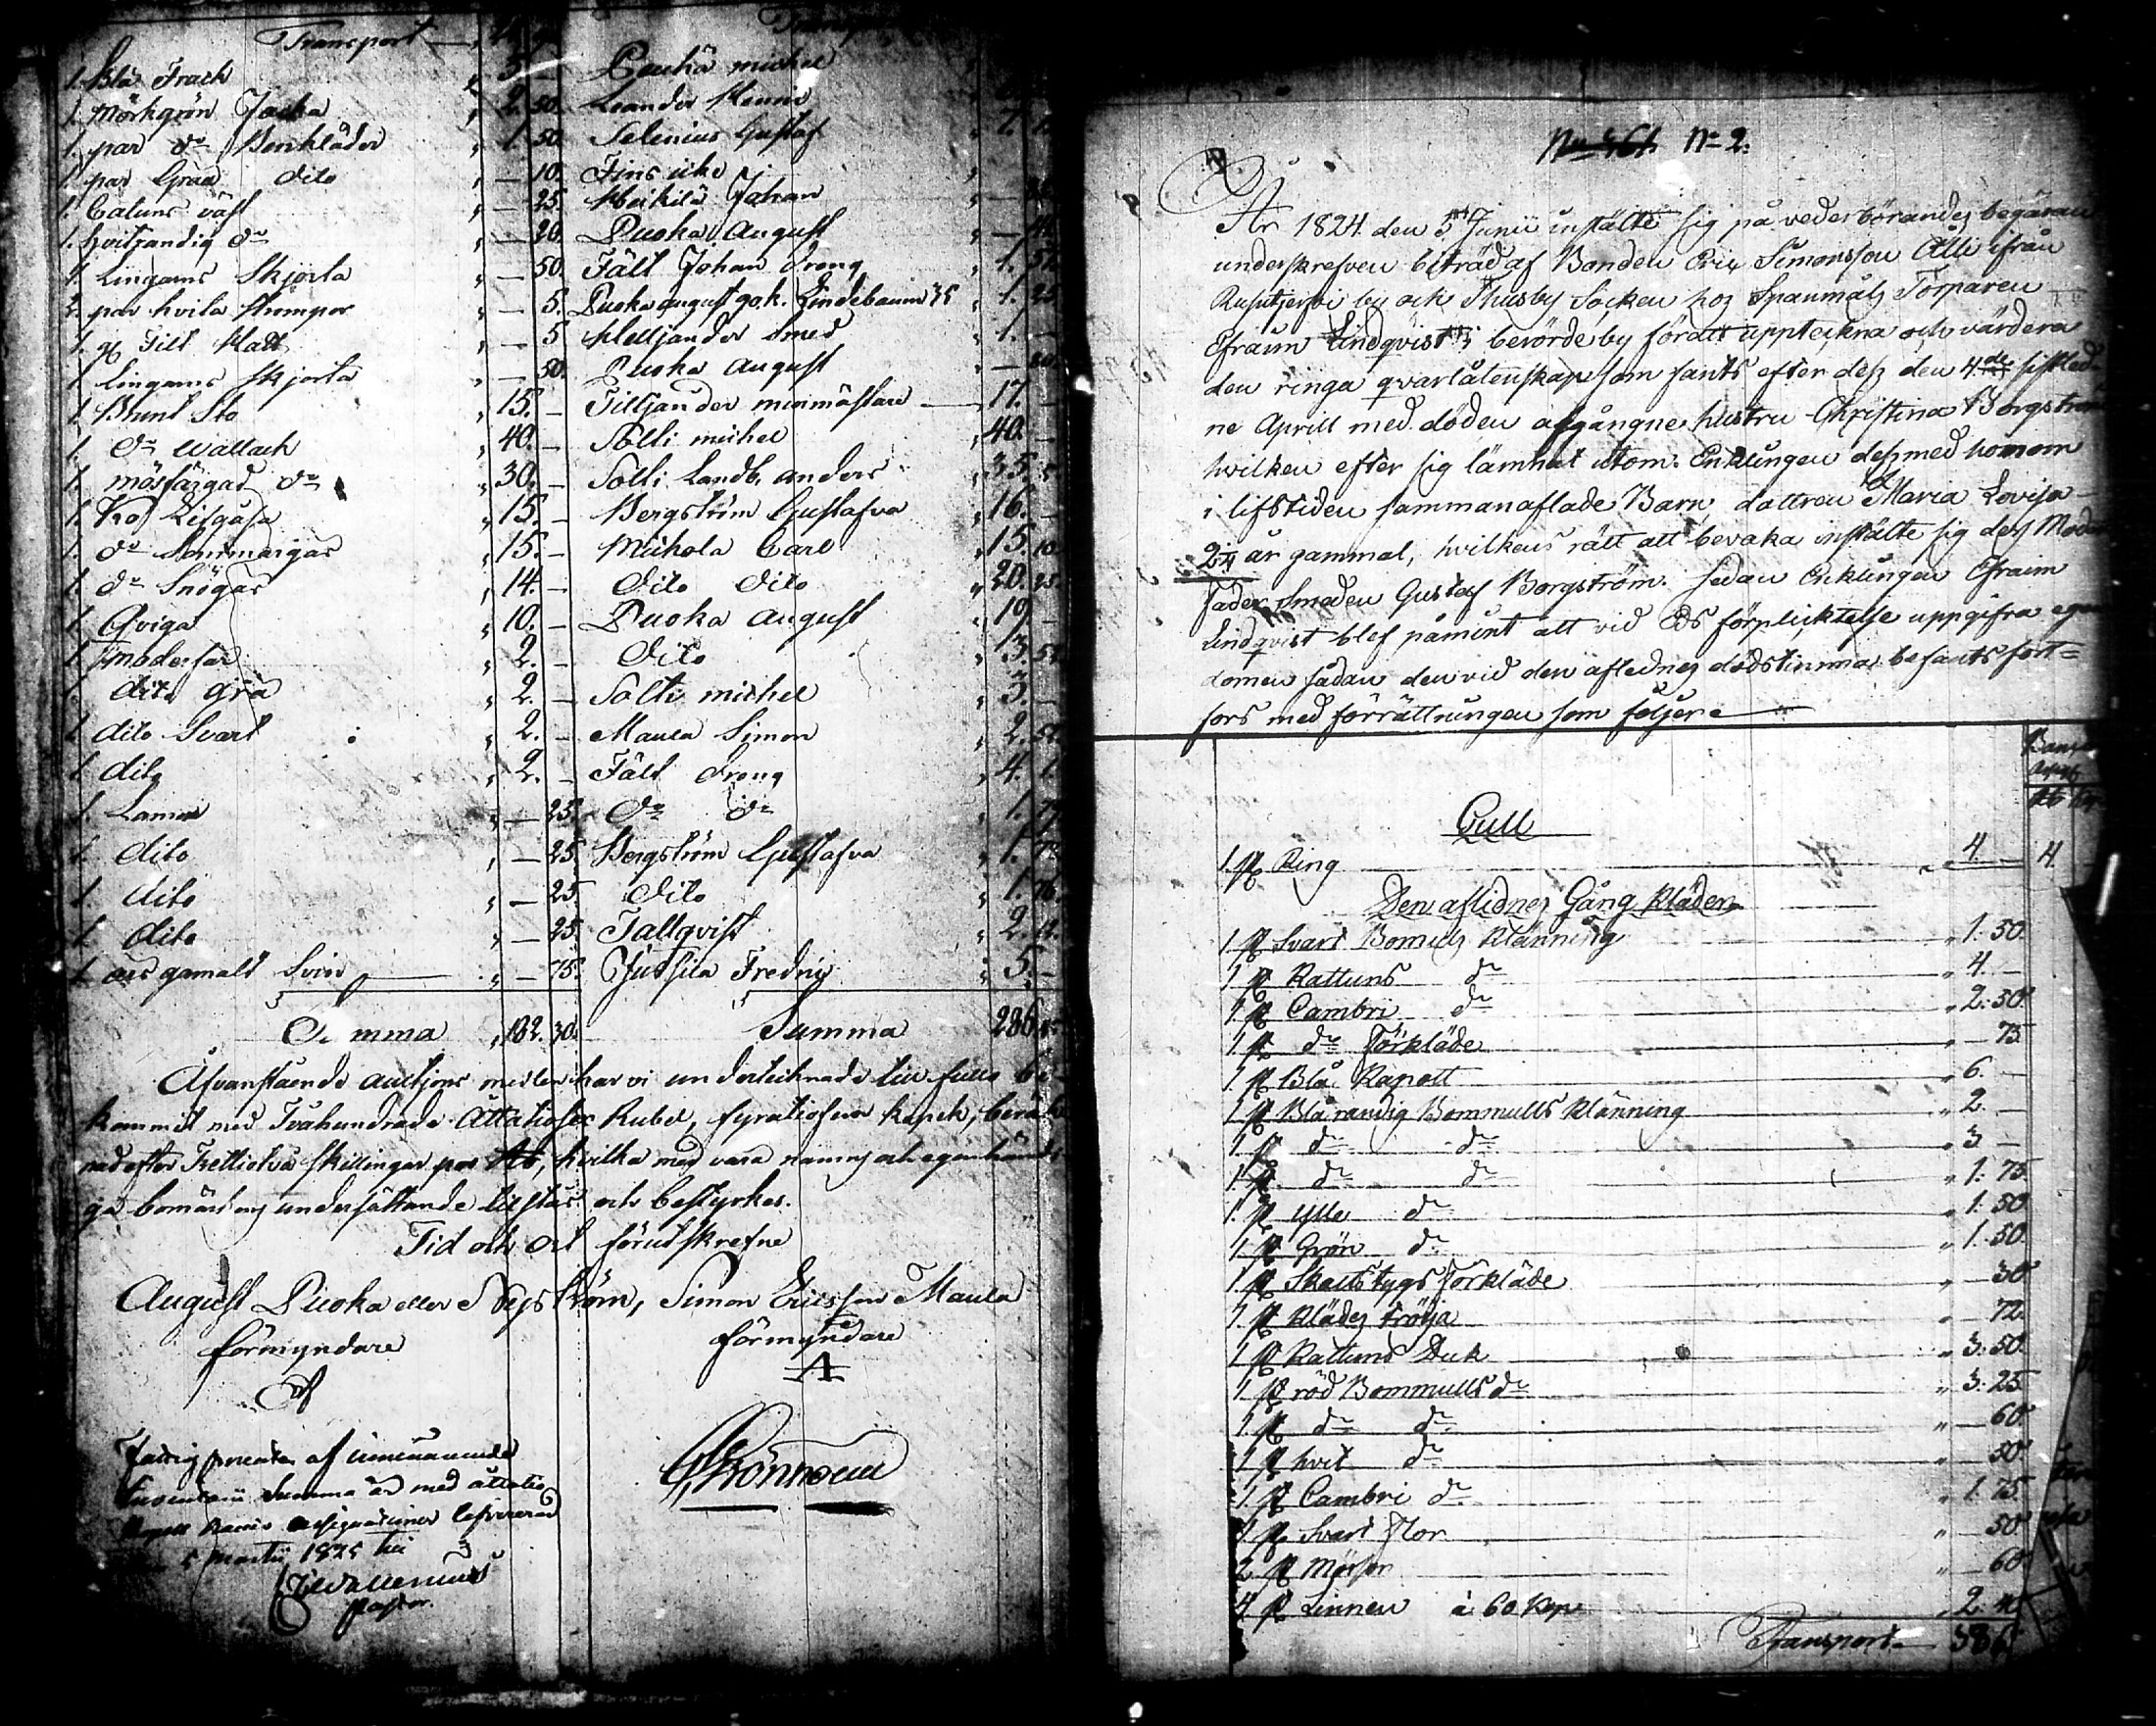 Transport
1. Blå Frack " 5. — Peuhä michel
1. Mörkgrön Jacka " 2. 50. Leander Henric
1. par do Benkläder " 1. 50. Selenius Gustaf
1. par Gråa dito " — 10. Fins
1. Catuns väst " — 25. Heikilä Johan
1. hvitrandig do " — 20. Puoka August
1. Lingarns Skjorta " — 50. Fält Johan dreng
2. par hvita Strumpor " — 5. Puoka august 90. k. Lindebaum 35 " 1. 25.
1. st Filt Hatt " — 5 Helljander Smed " 1. —
1 lingarns Skjorta " — 50. Puoka August
1. Brunt Sto " 15. — Tilljander — 17. —
1. do Wallach " 40. — Solli michel " 40. —
1. mösfärgad do " 30. — Solli Landb. anders " 35. 5
1. Ko Lifgåfa " 15. — Bergström Gustafva " 16. —
1. do Sommargås " 15. — Michola Carl " 15. 10.
1. do Snögås " 14. — dito dito " 20. 25.
1. Qviga " 10. — Puoka August " 19. —
1 moderfår " 2. — dito " 3. 50
1. dito grå " 2. — Solti michel " 3. —
1 dito Svart " 2. — Maula Simon " 2. 57.
1. dito " 2. — Fält dreng " 4. 1.
1. Lamm " — 25. do do " 1. 7.
1. dito " — 25. Bergström Gustafva " 1. 72
1 dito " — 25. dito " 1. 76.
1. dito " — 25. Tallqvist " 2. 12.
1 års gamalt Svin " — 75. Jussila Fredrig " 5. —
Summa " 182. 30. Summa 286. 45
Åfvanstående auctjons medlen har vi undertecknade till fullo be-
kommit med Tvåhundrade Åttatiosex Rubel, fyratiofem kopek, beräk
nad efter Trettiotvå skillingar par Rb, hvilka med våra namns och egenhändi
ga bomärkens undersättande tilstås och bestyrkes.
Tid och ort förutskrefne
August Puoka eller Nygström, Simon Ericsson Maula
förmyndare förmyndare
A
Fattig procenten af innenämnde
Inventarii Summa är med åttatio
kopek Banco assignationer lefvererad
5 Martii 1825 till
Wallenius
Pastor.
No 2.
År 1824 den 5te Junii instälte sig på vederbörandes begäran
underskrefven biträd af Bonden Eric Simonsson Alli ifrån
Rusutjerfvi by och Thusby Socken hos Spanmåls Torparen
Efraim Lindqvist i berörde by för att uppteckna och värdera
den ringa qvarlåtenskap som fants efter des den 4de sistled-
ne Aprill med döden afgångne hustru Christina Borgström
hvilken efter sig lämnat utom Enklingen des med honom
i lifstiden sammanaflade Barn, dottren Maria Lovisa
2¼ år gammal, hvilkens rätt att bevaka instälte sig des Moder
fader Smeden Gustaf Borgström. Sedan Enklingen Efraim
Lindqvist blef påmint att vid Eds förplicktelse uppgifva egen
domen sådan den vid den aflednes dödstimma befants fort=
fors med förrättningen som följer
Banco
Assign
Rb kop
Gull
1. st Ring " 4. — 4.
Den aflidnes Gång kläder
1. st Svart Bomuls klänning " 1. 50.
1 st Kattuns do " 4. —
1 st Cambri do " 2. 50.
1. st do Förkläde " — 75
1. st Blå Kapott " 6. —
1 st Blårandig Bommulls klänning " 2. —
1 st do do " 3 —
1 st do do " 1. 75
1. st ylle do " 1. 50
1. st Grön do " 1. 50
1. st Skattstygs Förkläde " — 30
1. st klädes tröija " — 72.
1 st Kattuns Duk " 3. 50.
1. st röd Bommulls do " 3. 25
1. st do do " — 60.
1. st hvit do " — 50
1. st Cambri do " 1. 75.
1. st Svart Flor " — 50
2 st Mössor " — 60
4 st Linnen à 60 kop " 2. 40
Transport